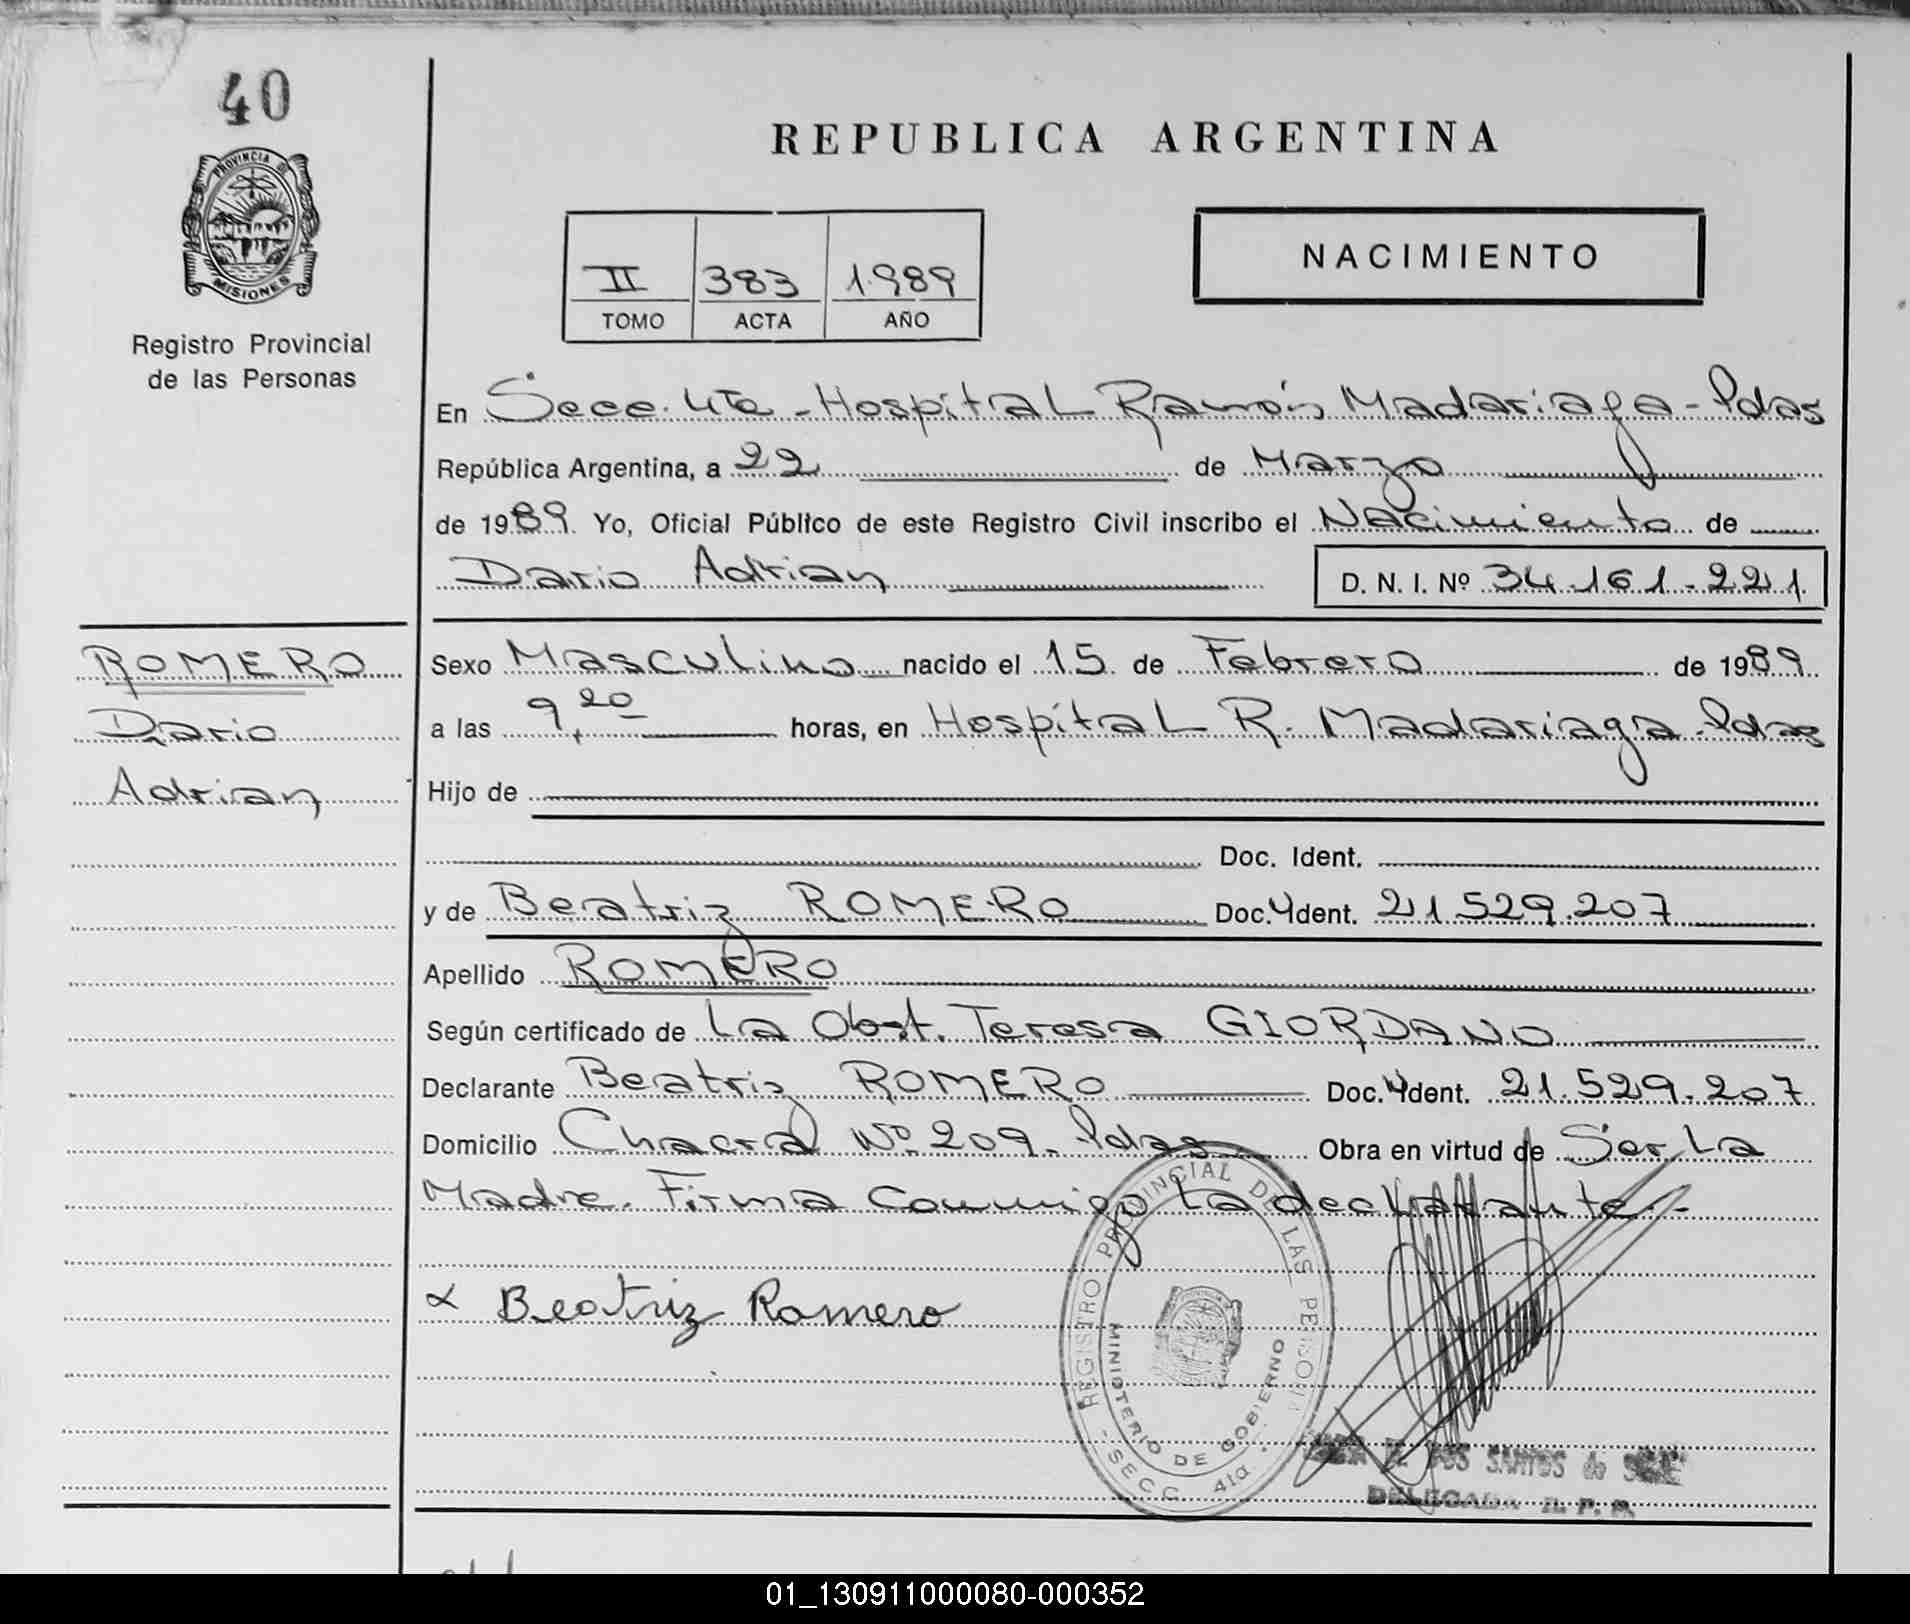 40
PROVINCIA DE
MISIONES
Registro Provincial
de las Personas
REPUBLICA ARGENTINA
II 383 1.989
TOMO ACTA AÑO
NACIMIENTO
En Secc. 4ta - Hospital Ramón Madariaga - Pdas
República Argentina, a 22 de Marzo
de 1989. Yo, Oficial Público de este Registro Civil inscribo el Nacimiento de
Dario Adrian D. N. I. Nº 34.161.221.
ROMERO
Dario
Adrian
Sexo Masculino nacido el 15 de Febrero de 1989
a las 9,20 horas, en Hospital R. Madariaga - Pdas
Hijo de
Doc. Ident.
y de Beatriz ROMERO Doc. Ident. 21.529.207
Apellido ROMERO
Según certificado de La Obst. Teresa GIORDANO
Declarante Beatriz ROMERO Doc. Ident. 21.529.207
Domicilio Chacra Nº 209 - Pdas Obra en virtud de Ser La
Madre. Firma Conmigo La declarante.-
Beatriz Romero
REGISTRO PROVINCIAL DE LAS PERSONAS
MINISTERIO DE GOBIERNO
- SECC. 4ta.
DOS SANTOS de
DELEGADA R. P. P.
01_130911000080-000352